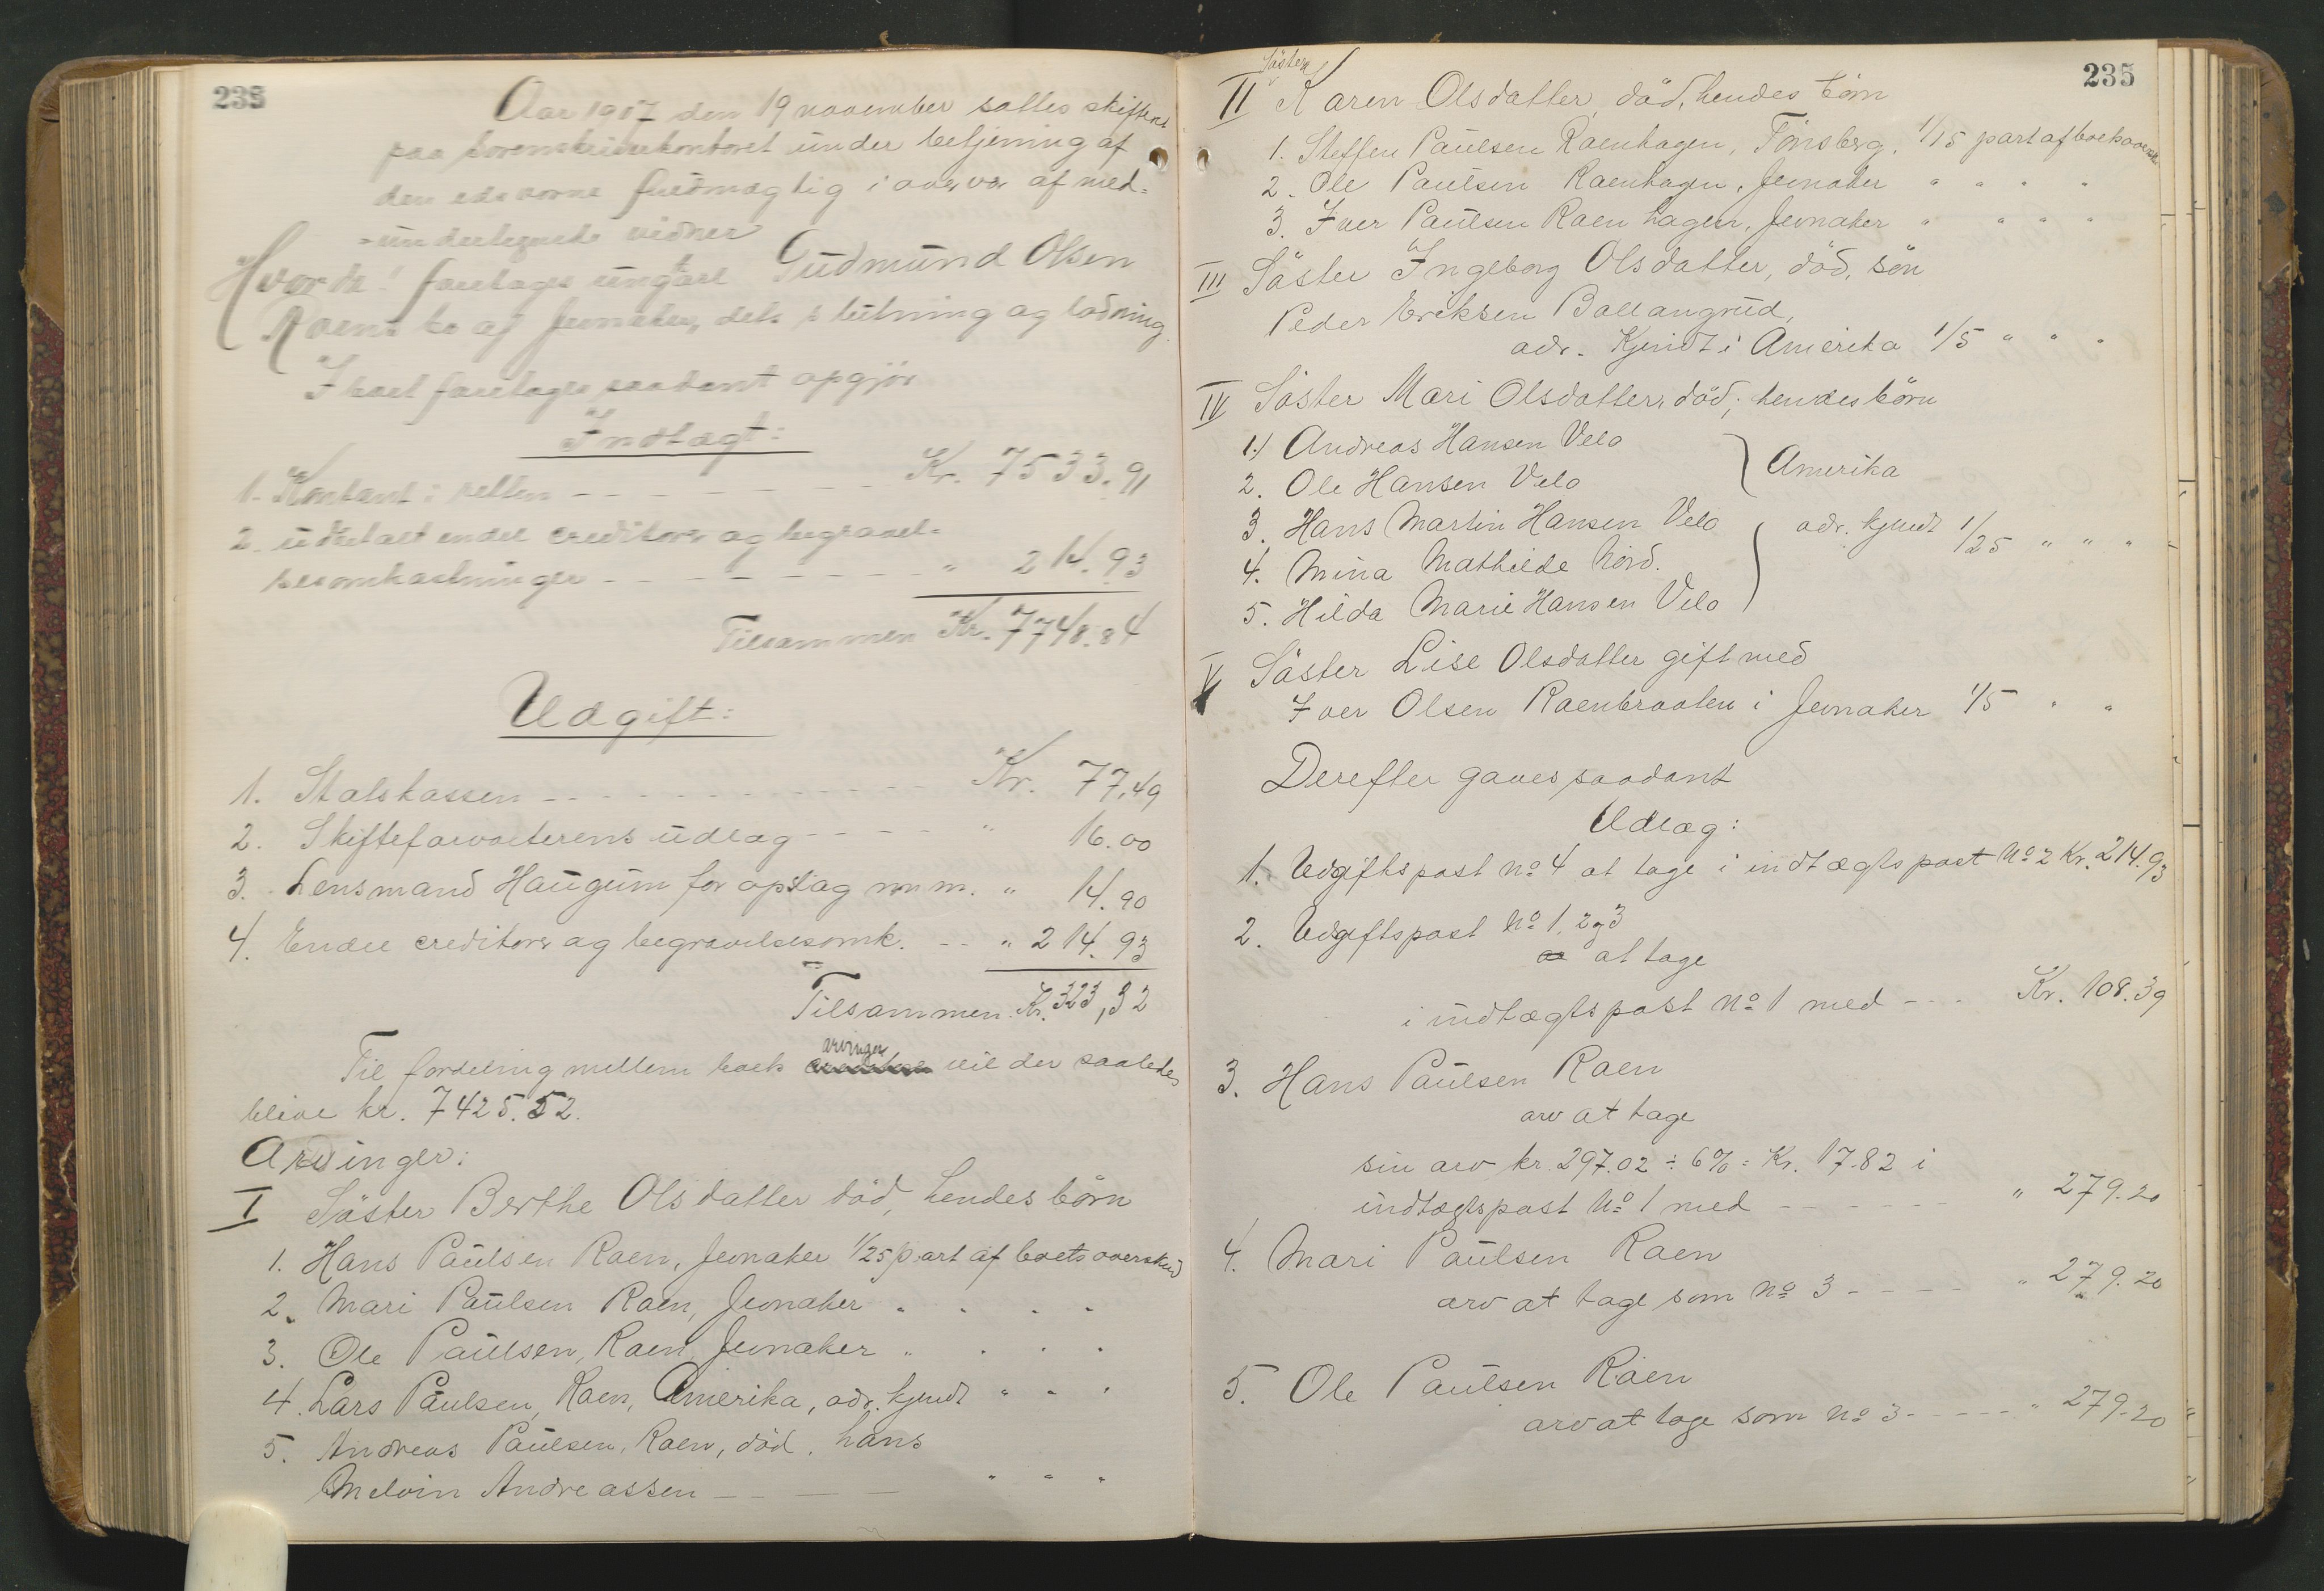 235
Aar 1917 den 19 november sattes skifteret
paa sorenskriverkontoret under betjening af
den edsvorne fuldmægtig i overvær af med-
-undertegnede vidner
Hvorda! foretages ungkarl Gudmund Olsen
Raens bo af Jevnaker, dets slutning og lodning.
I boet foretages saadant opgjør
Indtægt:
1. Kontant i retten - - - - - - Kr. 7533.91
2. udbetalt endel creditorer og begravel-
sesomkostninger - - - - - - " 214.93
Tilsammen Kr. 7748.84
Udgift:
1. Statskassen - - - - - - Kr. 77,49
2. Skifteforvalterens udlæg - - - - " 16.00
3. Lensmand Haugum for optag m.m. " 14.90
4. Endel creditorer og begravelsesomk. - - " 214.93
Tilsammen Kr. 323,32
arvinger
Til fordeling mellem boets vil der saaledes
blive kr. 7425.52.
Arvinger:
I Søster Berthe Olsdatter død, hendes børn
1. Hans Paulsen Raen, Jevnaker 1/25 part af boets overskud
2. Mari Paulsen Raen, Jevnaker " " " "
3. Ole Paulsen, Raen, Jevnaker " " " "
4. Lars Paulsen, Raen, Amerika, adr. kjendt " " "
5. Andreas Paulsen, Raen, død, hans
Melvin Andreassen - - - - " " "
235
Søsteren
II Karen Olsdatter, død, hendes børn
1. Steffen Paulsen Raenhagen, Tønsberg. 1/15 part af boets oversk.
2. Ole Paulsen Raenhagen, Jevnaker " " " "
3. Iver Paulsen Raenhagen, Jevnaker " " " "
III Søster Ingeborg Olsdatter, død, søn
Peder Eriksen Ballangrud,
adr. kjendt i Amerika 1/5 " " "
IV Søster Mari Olsdatter, død; hendes børn
1.) Andreas Hansen Velo
2. Ole Hansen Velo
Amerika
3. Hans Martin Hansen Velo
adr. kjendt 1/25 " " " "
4. Mina Mathilde Nord.
5. Hilda Marie Hansen Velo
V Søster Lise Olsdatter gift med
Iver Olsen Raenbraaten i Jevnaker 1/5 " "
Derefter gaves saadant
Udlæg:
1. Udgiftspost No 4 at tage i indtægtspost No 2 Kr. 214.93
2. Udgiftspost No 1, 2 og 3
at tage
i indtægtspost No 1 med - - - Kr. 108.39
3. Hans Paulsen Raen
arv at tage
sin arv kr. 297.02 ÷ 6% = Kr. 17.82 i
indtægtspost No 1 med - - - - - - " 279.20
4. Mari Paulsen Raen
arv at tage som No 3 - - - - " 279.20
5. Ole Paulsen Raen
arv at tage som No 3 - - - - - " 279.20